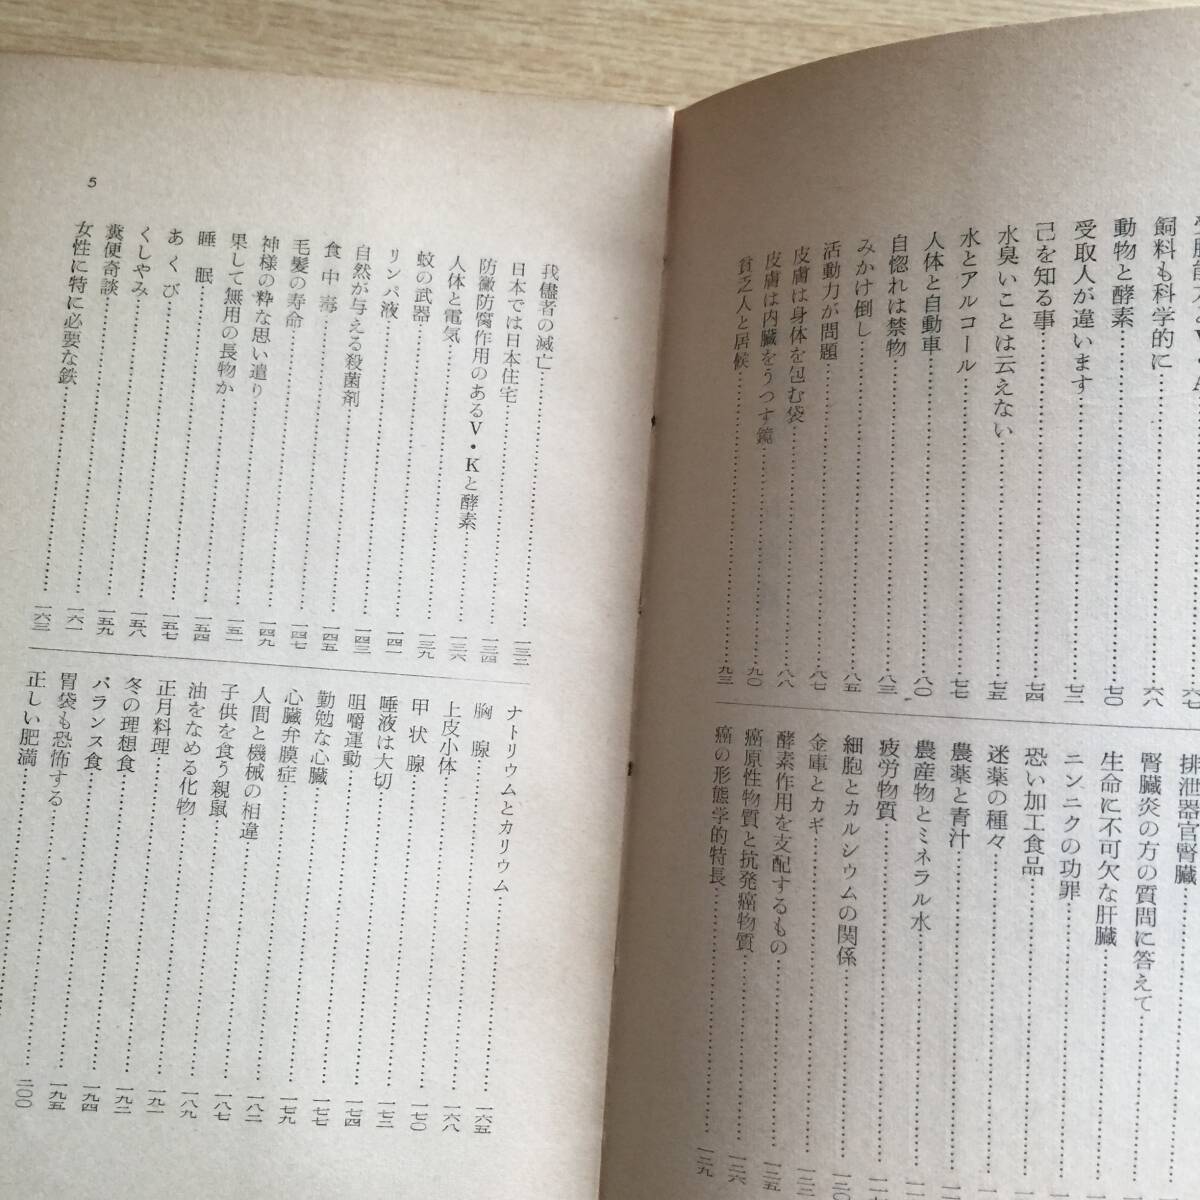 飼料も科学的に………六八
動物と酵素………七〇
受取人が違います………七二
己を知る事………七四
水臭いことは云えない………七五
水とアルコール………七七
人体と自動車………八〇
自惚れは禁物………八三
みかけ倒し………八五
活動力が問題………八七
皮膚は身体を包む袋………八八
皮膚は内臓をうつす鏡………九〇
貧乏人と居候………九三
排泄器官腎臓………
腎臓炎の方の質問に答えて………
生命に不可欠な肝臓………
ニンニクの功罪………
恐い加工食品………
迷薬の種々………
農薬と青汁………
農産物とミネラル水………
疲労物質………
細胞とカルシウムの関係………一三〇
金庫とカギ………
酵素作用を支配するもの………一三五
癌原性物質と抗発癌物質………一三六
癌の形態学的特長………一三九
我儘者の滅亡………一三二
日本では日本住宅………一三四
防黴防腐作用のあるV・Kと酵素………一三六
人体と電気………一三九
蚊の武器………一四一
リンパ液………一四三
自然が与える殺菌剤………一四五
食中毒………一四七
毛髪の寿命………一四九
神様の粋な思い遣り………一五一
果して無用の長物か………一五四
睡眠………一五七
あくび………一五八
くしやみ………一五九
糞便奇談………一六一
女性に特に必要な鉄………一六三
ナトリウムとカリウム………
胸腺………一六五
上皮小体………一六八
甲状腺………一七〇
唾液は大切………一七二
咀嚼運動………一七四
勤勉な心臓………一七七
心臓弁膜症………一七九
人間と機械の相違………一八二
子供を食う親鼠………一八七
油をなめる化物………一八九
正月料理………一九一
冬の理想食………一九二
バランス食………一九四
胃袋も恐怖する………一九五
正しい肥満………二〇〇
5